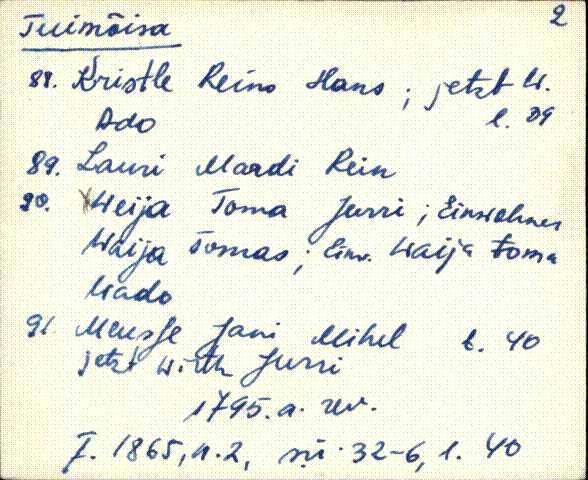 2
Tuimõisa
88. Kristle Reino Hans; jetzt W.
Ado l. 39
89. Lauri Mardi Rein
90. Weija Toma Jurri; Einwohner
Waija Tomas; Einw. Waija Toma
Mado
91. Meusse Jani Mihel l. 40
jetzt Wirth Jurri
1795. a. rev.
F. 1865, n. 2, sü. 32-6, l. 40